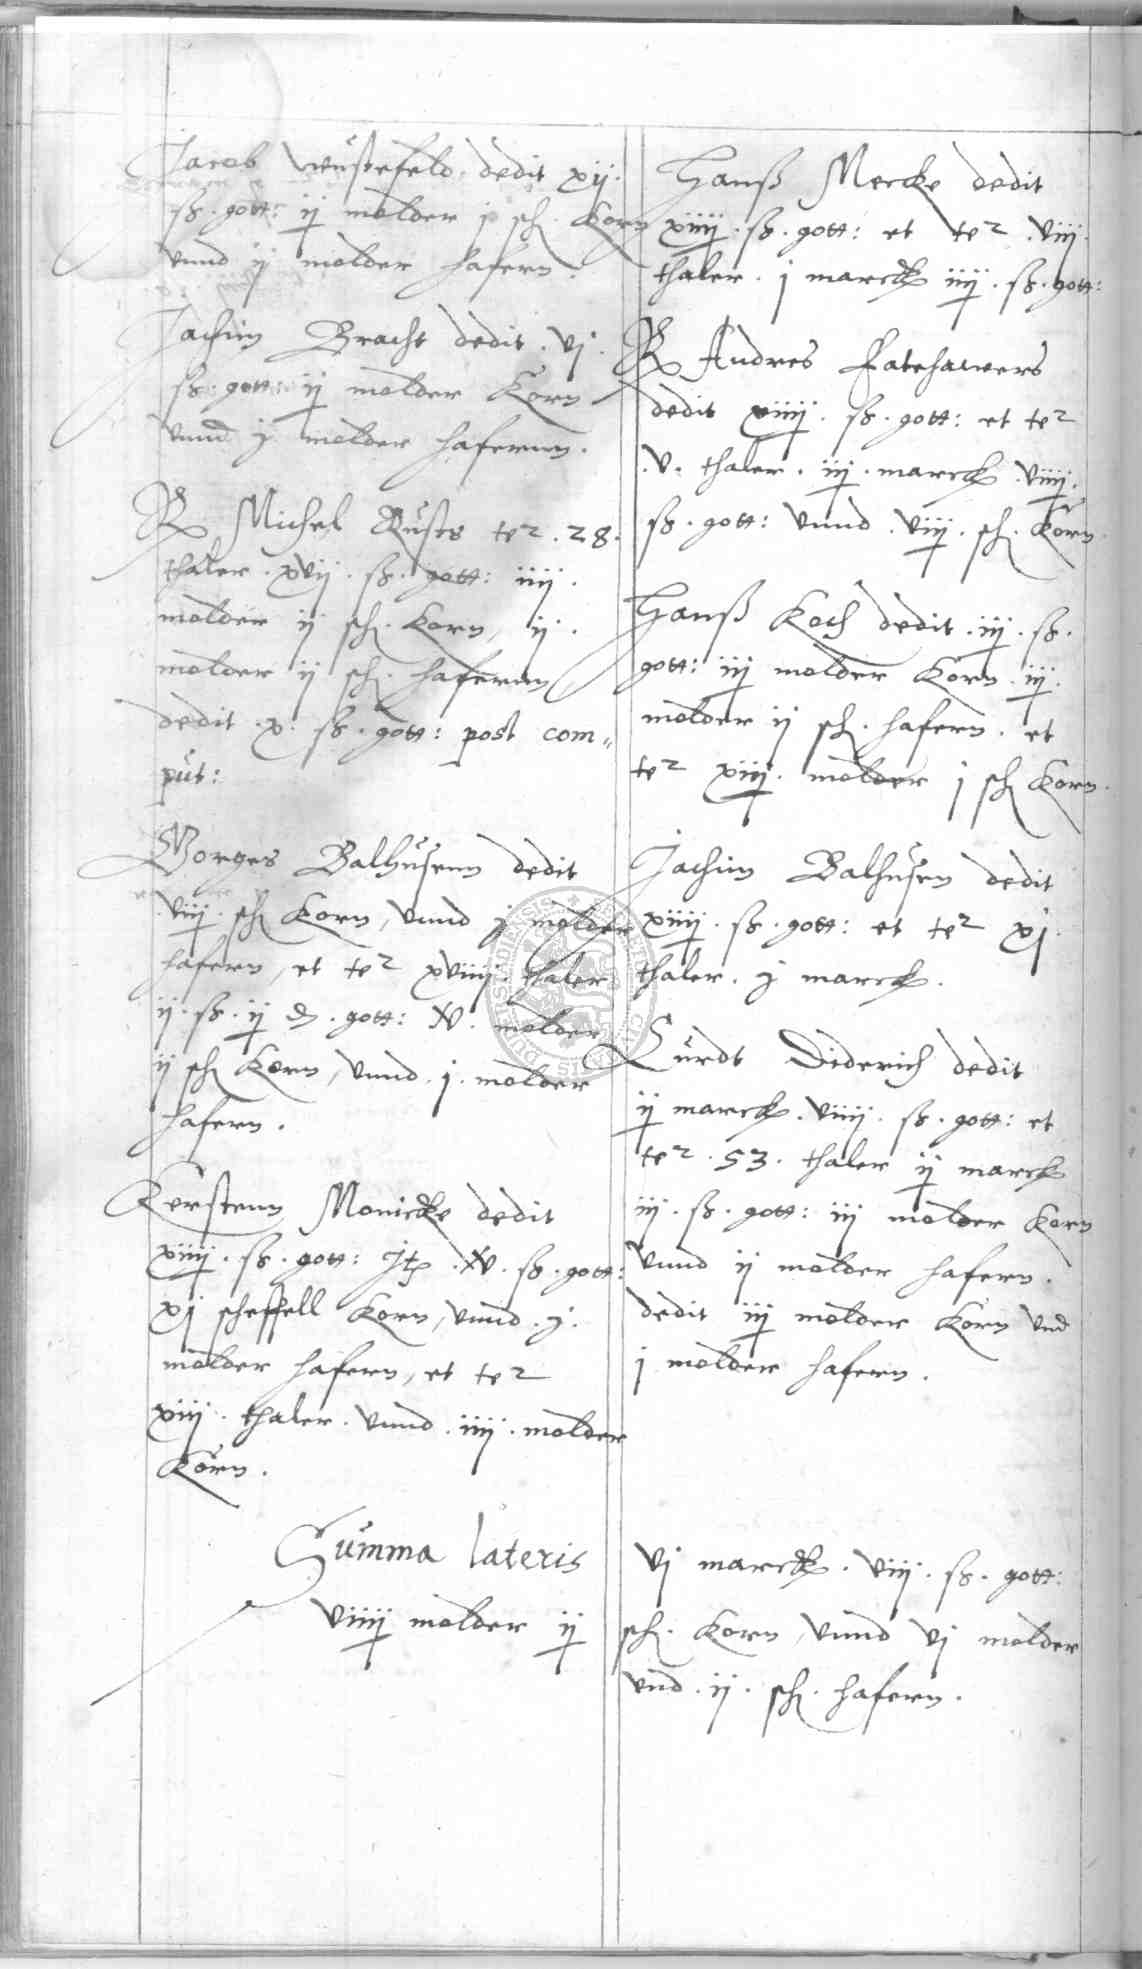 Jacob Wüstefeld dedit xij.
ß. gott: ij molder j sch. Korn
vnnd ij molder hafern.
Jachim Bracht dedit. vj.
ß. gott: ij molder Korn
vnnd j molder hafernn.
R Michel Rusts te2. 28.
thaler. xvij. ß. gott: iiij.
molder ij sch. Korn, ij.
molder ij sch. hafernn
dedit. x. ß. gott: post com=
put:
Borges Balhusenn dedit
viij. sch Korn, vnnd j molder
hafern, et te2 xviiij. thaler
ij. ß. ij d. gott: xv. molder
ij sch Korn, vnnd. j. molder
hafern.
Kerstenn Monicke dedit
xiiij. ß. gott: Jtem. xv. ß. gott:
xj scheffell Korn, vnnd. j.
molder hafern, et te2
xiij. thaler. vnnd. iiij. molder
Korn.
Hanß Mercke dedit
xiiij. ß. gott: et te2. viij.
thaler. j marck iiij. ß. gott:
R Andres Fatehawers
dedit xiiij. ß. gott: et te2
.v. thaler. iij. marck. viiij.
ß. gott: vnnd. viij. sch. Korn.
Hanß Koch dedit. iij. ß.
gott: iij molder Korn. iij.
molder ij sch. hafern. et
te2 xiij. molder j sch Korn.
Jachim Balhusen dedit
xiiij. ß. gott: et te2 xj.
thaler. j marck.
Curdt Diderich dedit
ij marck. viiij. ß. gott: et
te2. 53. thaler ij marck
iij. ß. gott: iij molder Korn
vnnd ij molder hafern.
dedit iij molder Korn vnd
j molder hafern.
Summa lateris vj marck. viij. ß. gott:
viiij molder ij sch. Korn, vnnd vj molder
vnd. ij. sch. hafern.